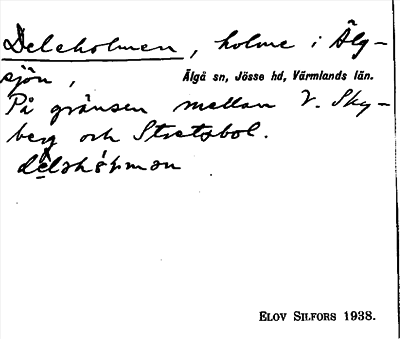 Deleholmen, holme i Älg-
sjön,
Älgå sn, Jösse hd, Värmlands län.
På gränsen mellan V. Sky-
berg och Stretsbol.
ELOV SILFORS 1938.